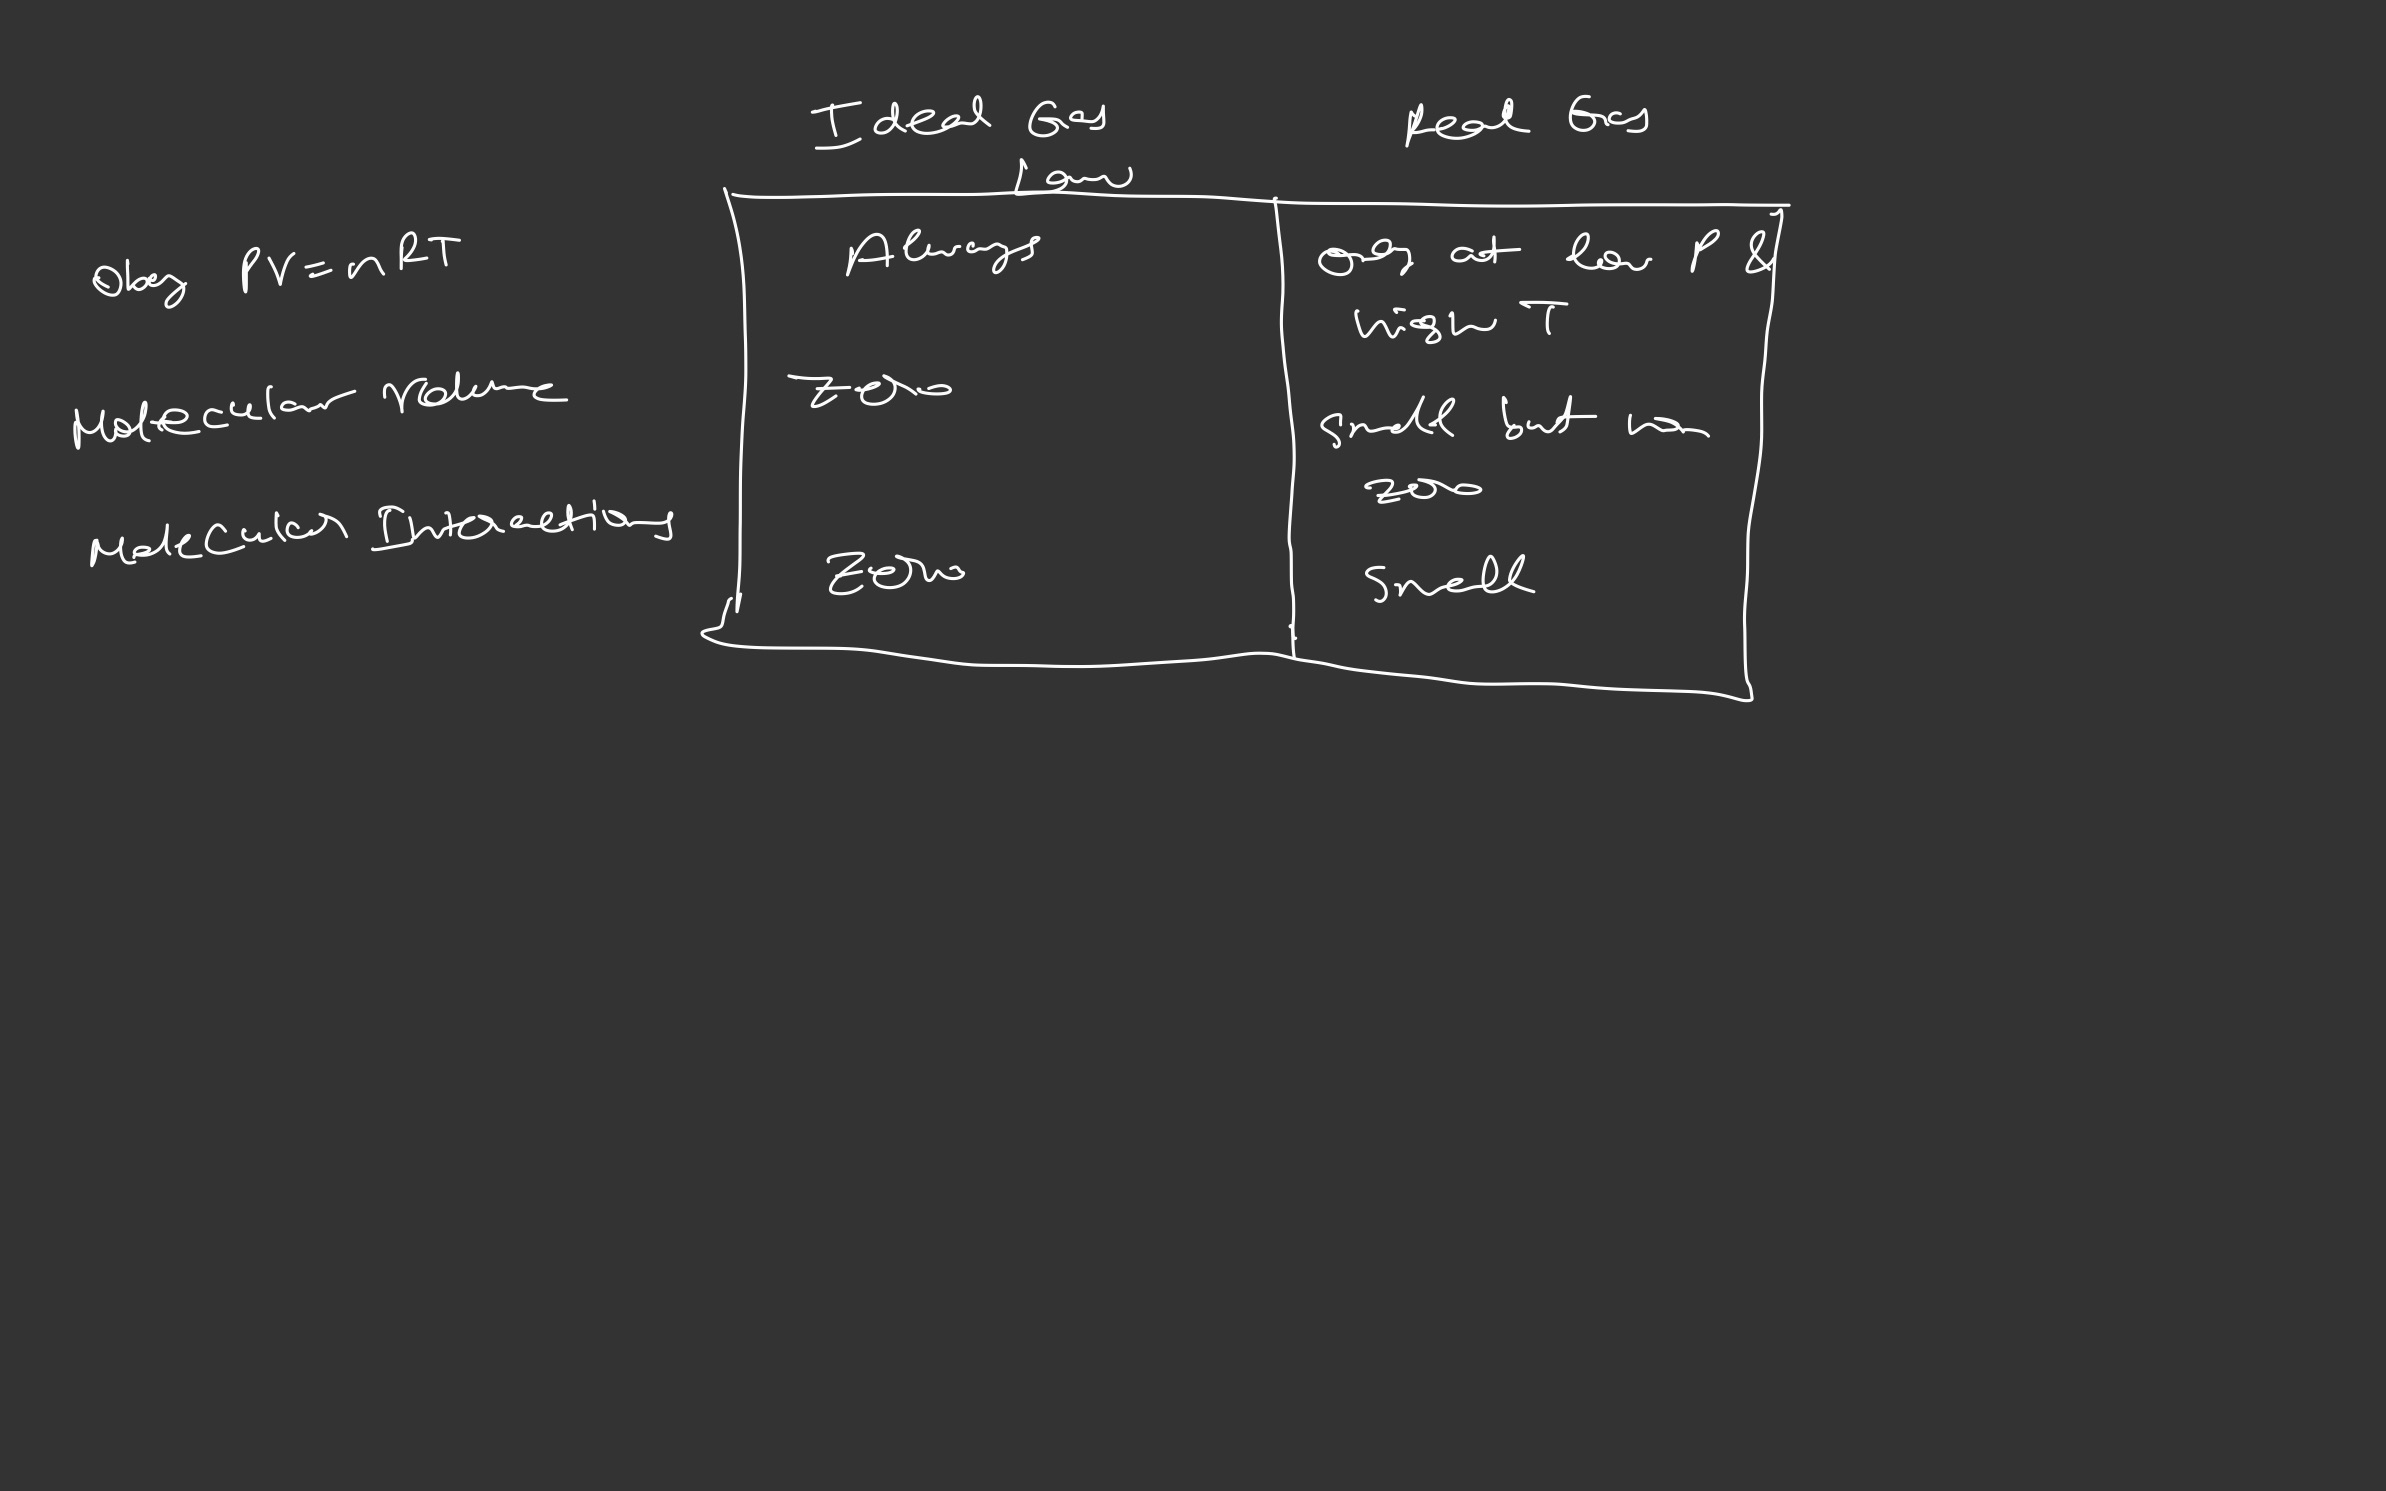 Ideal Gas Real Gas
Law
Obey PV = nRT Always Only at low P &
high T
Molecular Volume Zero Small but non
zero
Molecular Interactions Zero Small